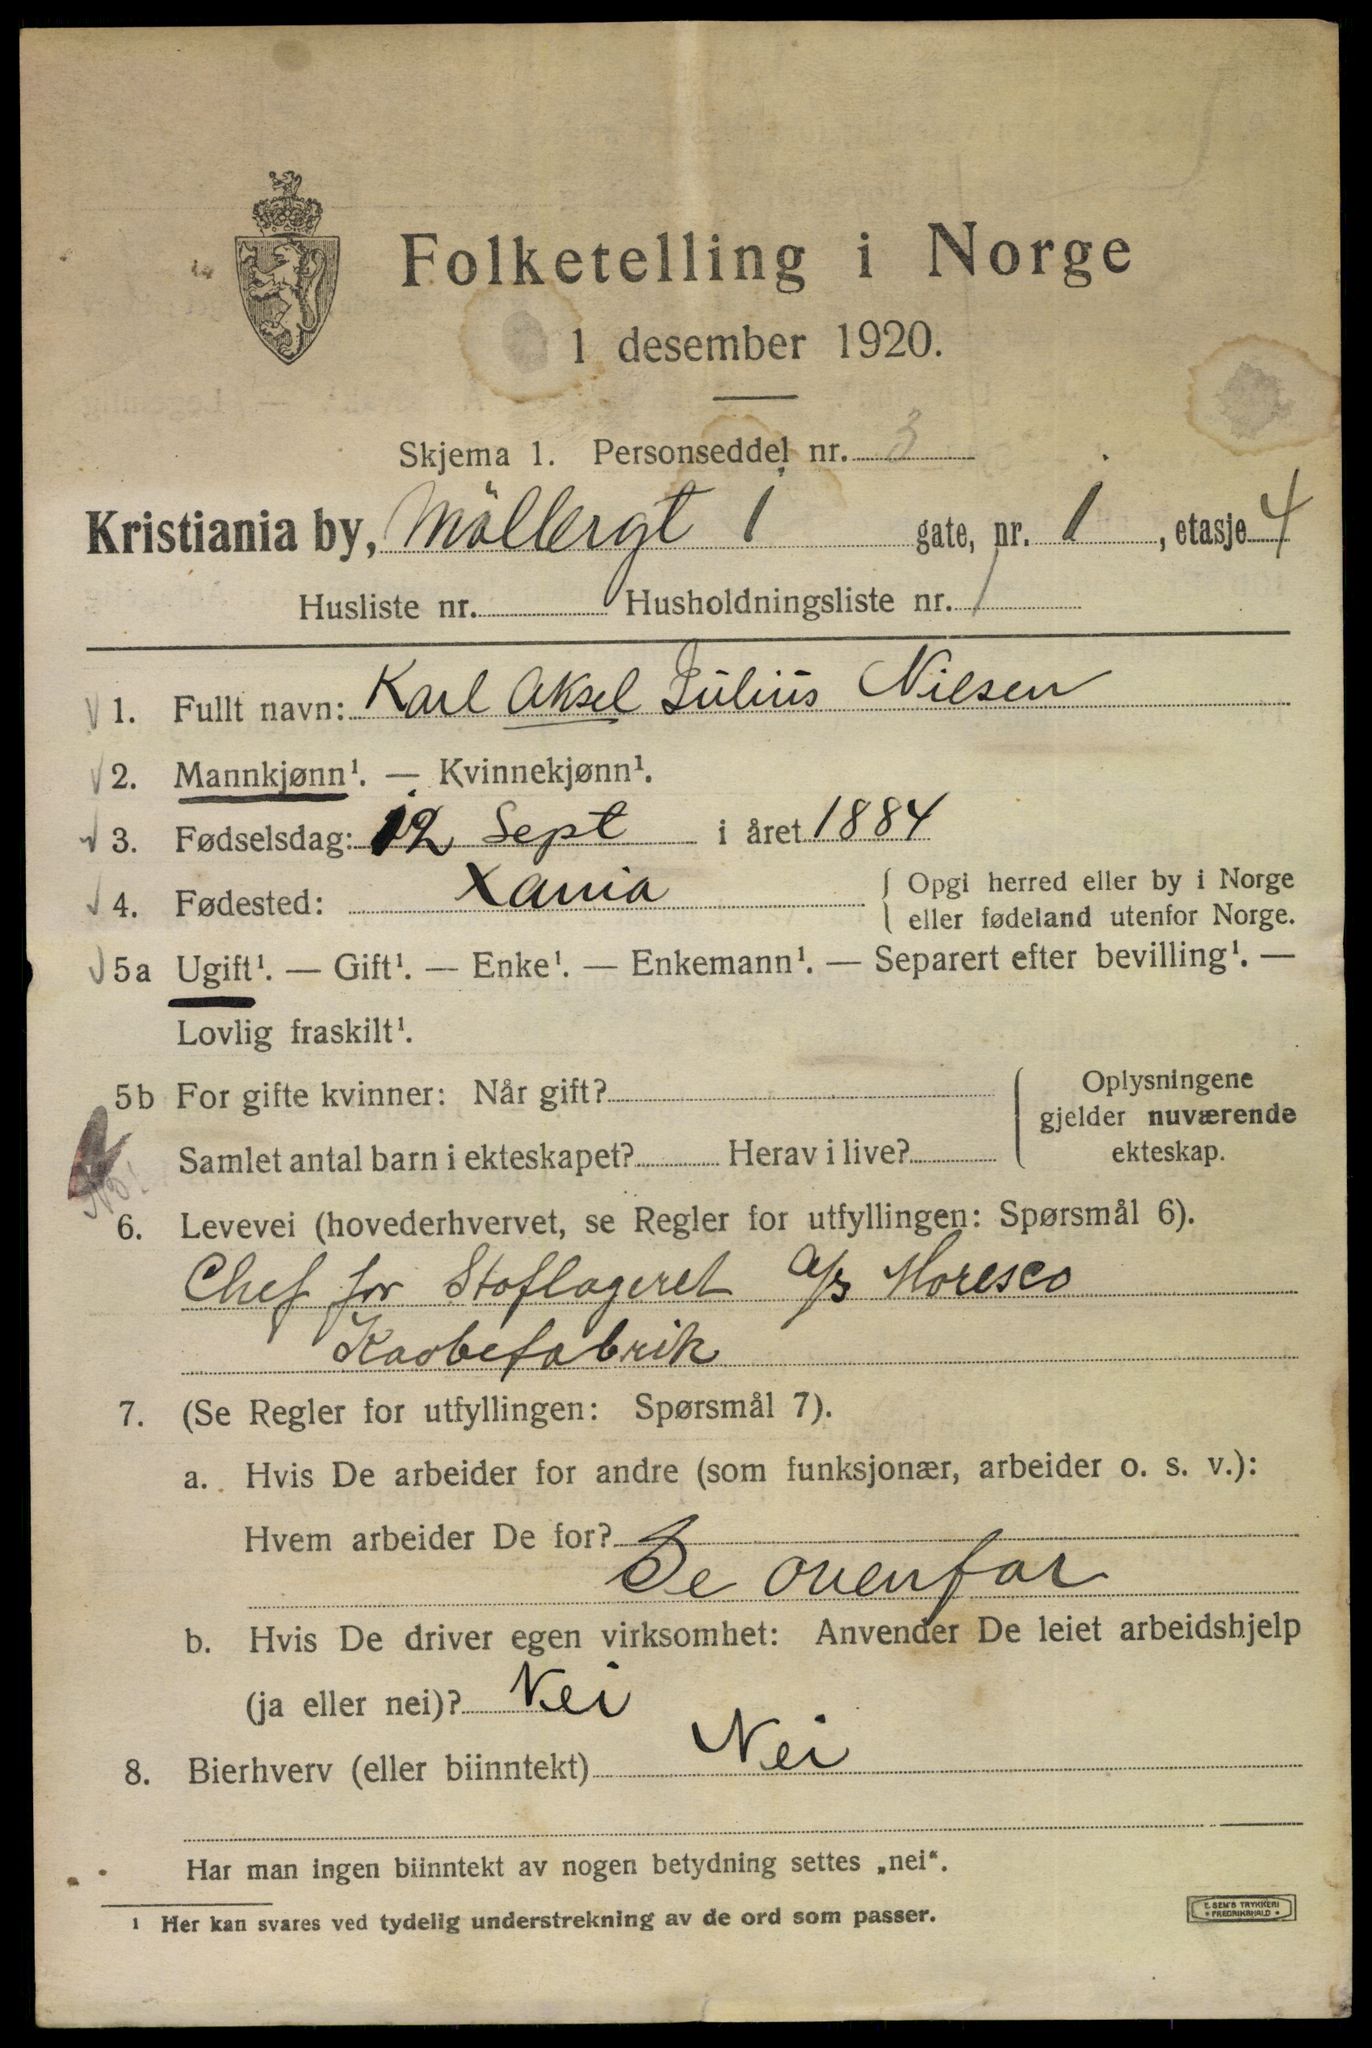 Folketelling i Norge
1 desember 1920.
Skjema 1. Personseddel nr. 3
Kristiania by, Möllergt 1 gate, nr. 1, etasje 4
Husliste nr. Husholdningsliste nr. 1
1. Fullt navn: Karl Aksel Julius Nilsen
2. Mannkjønn¹. — Kvinnekjønn¹.
3. Fødselsdag: 12 Sept i året 1884
4. Fødested: Xania { Opgi herred eller by i Norge
eller fødeland utenfor Norge.
5a Ugift¹. — Gift¹. — Enke¹. — Enkemann¹. — Separert efter bevilling¹. —
Lovlig fraskilt¹.
5b For gifte kvinner: Når gift?
Samlet antal barn i ekteskapet? Herav i live?
Oplysningene
gjelder nuværende
ekteskap.
6. Levevei (hovederhvervet, se Regler for utfyllingen: Spørsmål 6).
Chef for Stoflageret A/S Moresco
Kaabefabrik
7. (Se Regler for utfyllingen: Spørsmål 7).
a. Hvis De arbeider for andre (som funksjonær, arbeider o. s. v.):
Hvem arbeider De for?
Se ovenfor
b. Hvis De driver egen virksomhet: Anvender De leiet arbeidshjelp
(ja eller nei)? Nei
8. Bierhverv (eller biinntekt) Nei
Har man ingen biinntekt av nogen betydning settes „nei“.
¹ Her kan svares ved tydelig understrekning av de ord som passer.
E. SEM'S TRYKKERI
* FREDRIKSHALD *